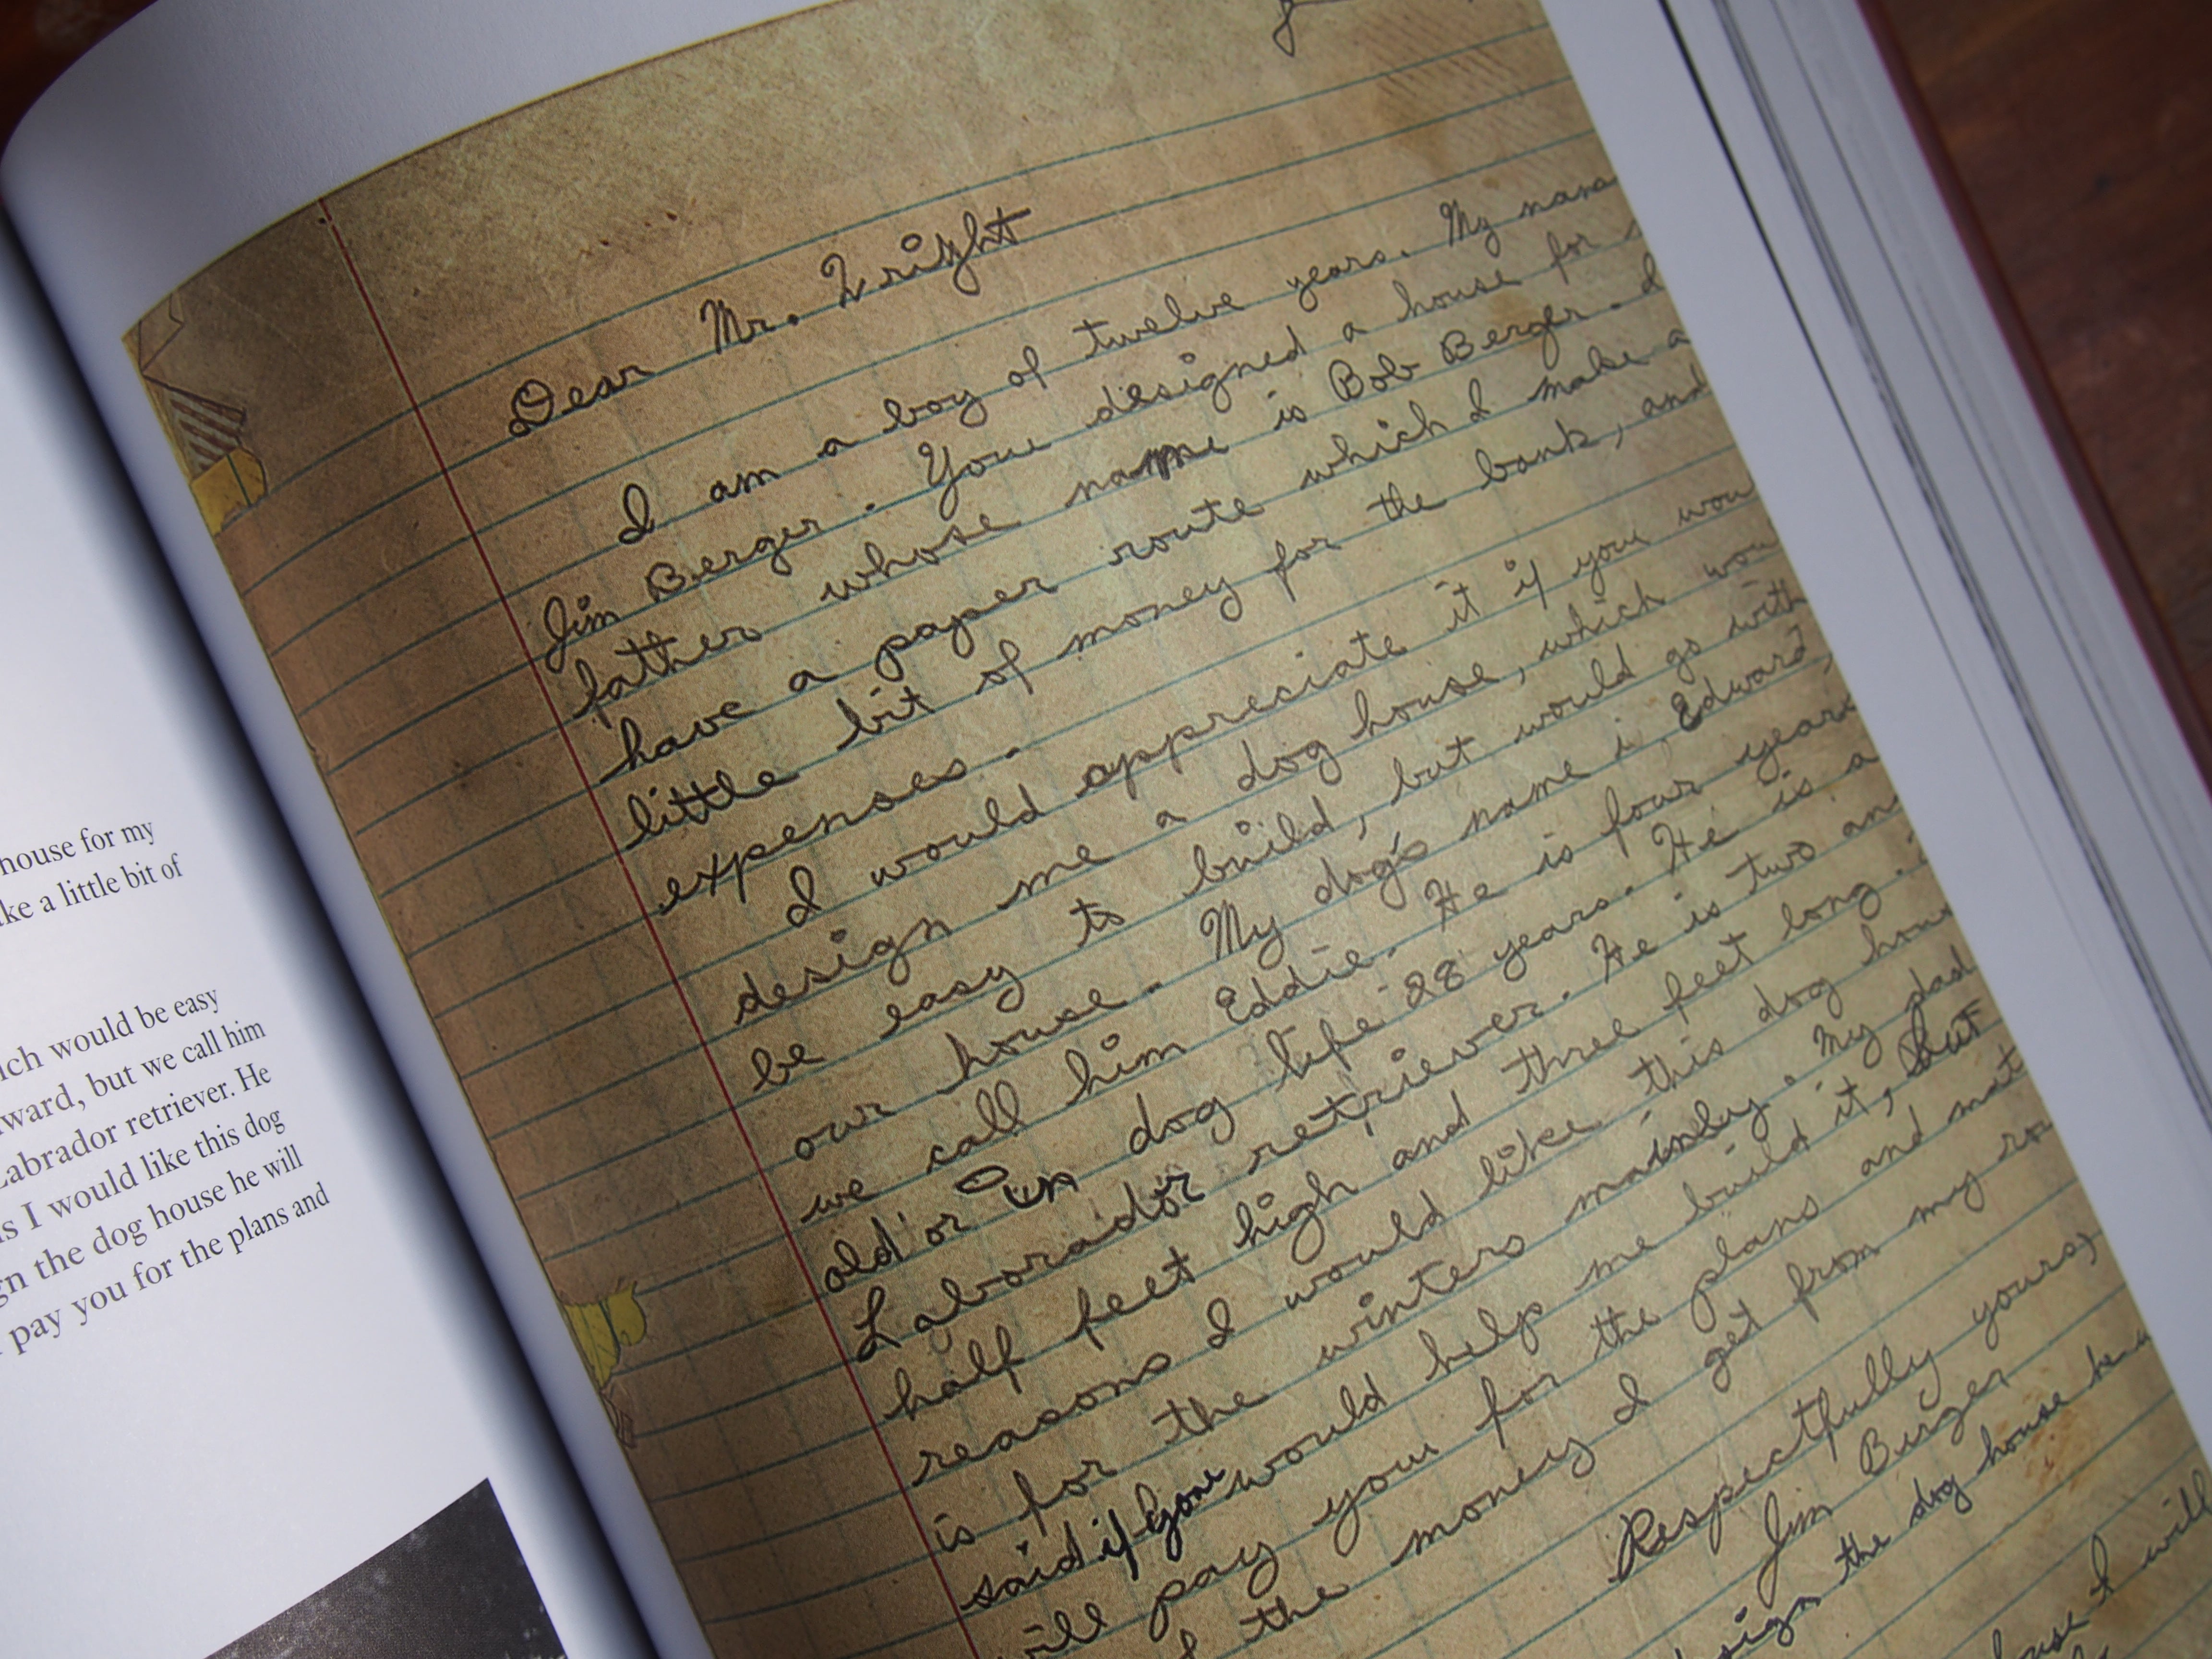 house for my
ke a little bit of
ich would be easy
ward, but we call him
Labrador retriever. He
s I would like this dog
gn the dog house he will
pay you for the plans and
Dear Mr. Wright
I am a boy of twelve years. My name
Jim Berger. You designed a house for
father whose name is Bob Berger. I
have a paper route which I make a
little bit of money for the bank, and
expenses.
I would appreciate it if you wou
design me a dog house, which wou
be easy to build, but would go with
our house. My dog's name is Edward,
we call him Eddie. He is four years
old or in dog life 28 years. He is a
Laborador retriever. He is two an
half feet high and three feet long.
reasons I would like this dog hous
is for the winters mainly. My dad
said if you would help me build it, but
will pay you for the plans and mat
the money I get from my rou
Respectfully yours,
Jim Berger
sign the dog house he
I will